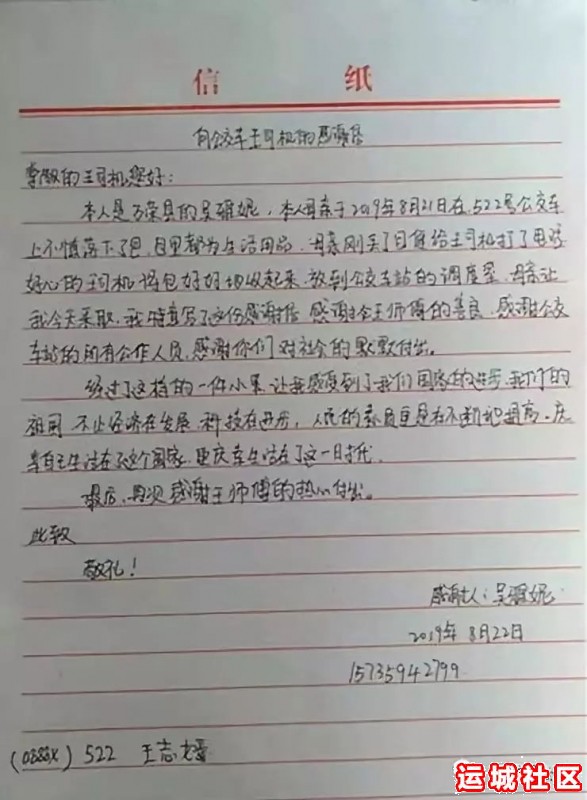 信 纸
向公交车王司机的感谢信
尊敬的王司机您好:
本人是万荣县的吴雅妮,本人母亲于2019年8月21日在522号公交车
上不慎落下了包,包里都为生活用品,母亲刚丢了包便给王司机打了电话
好心的王司机将包好好地收起来,放到公交车站的调度室,母亲让
我今天来取,我特意写了这份感谢信 感谢金王师傅的善良,感谢公交
车站的所有公作人员,感谢你们对社会的默默付出。
经过了这样的一件小事让我感受到了我们国家的进步,我们的
祖国不止经济在发展,科技在进步,人民的素质更是在不断地提高,庆
幸自己生活在了这个国家,更庆幸生活在了这一时代。
最后,再次感谢王师傅的热心付出。
此致
敬礼!
感谢人:吴雅妮
2019年8月22日
15735942799
522 王志
运城社区